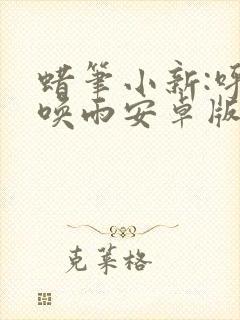 蜡笔小新:呼
唤雨安卓版
克莱格